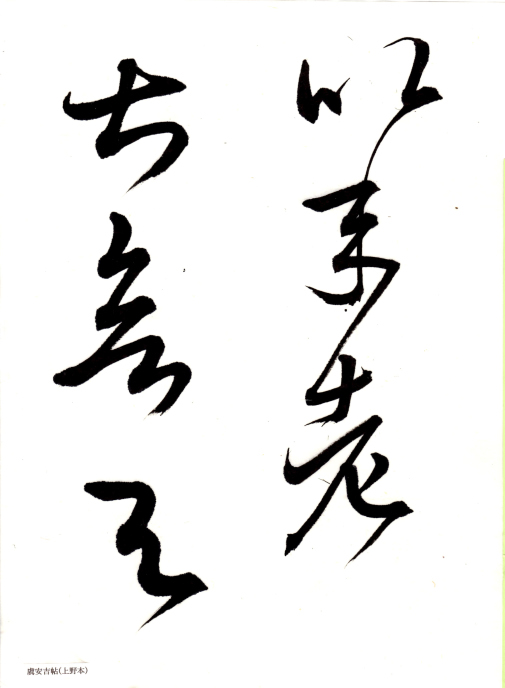 以年老
甚欲與
虞安吉帖(上野本)